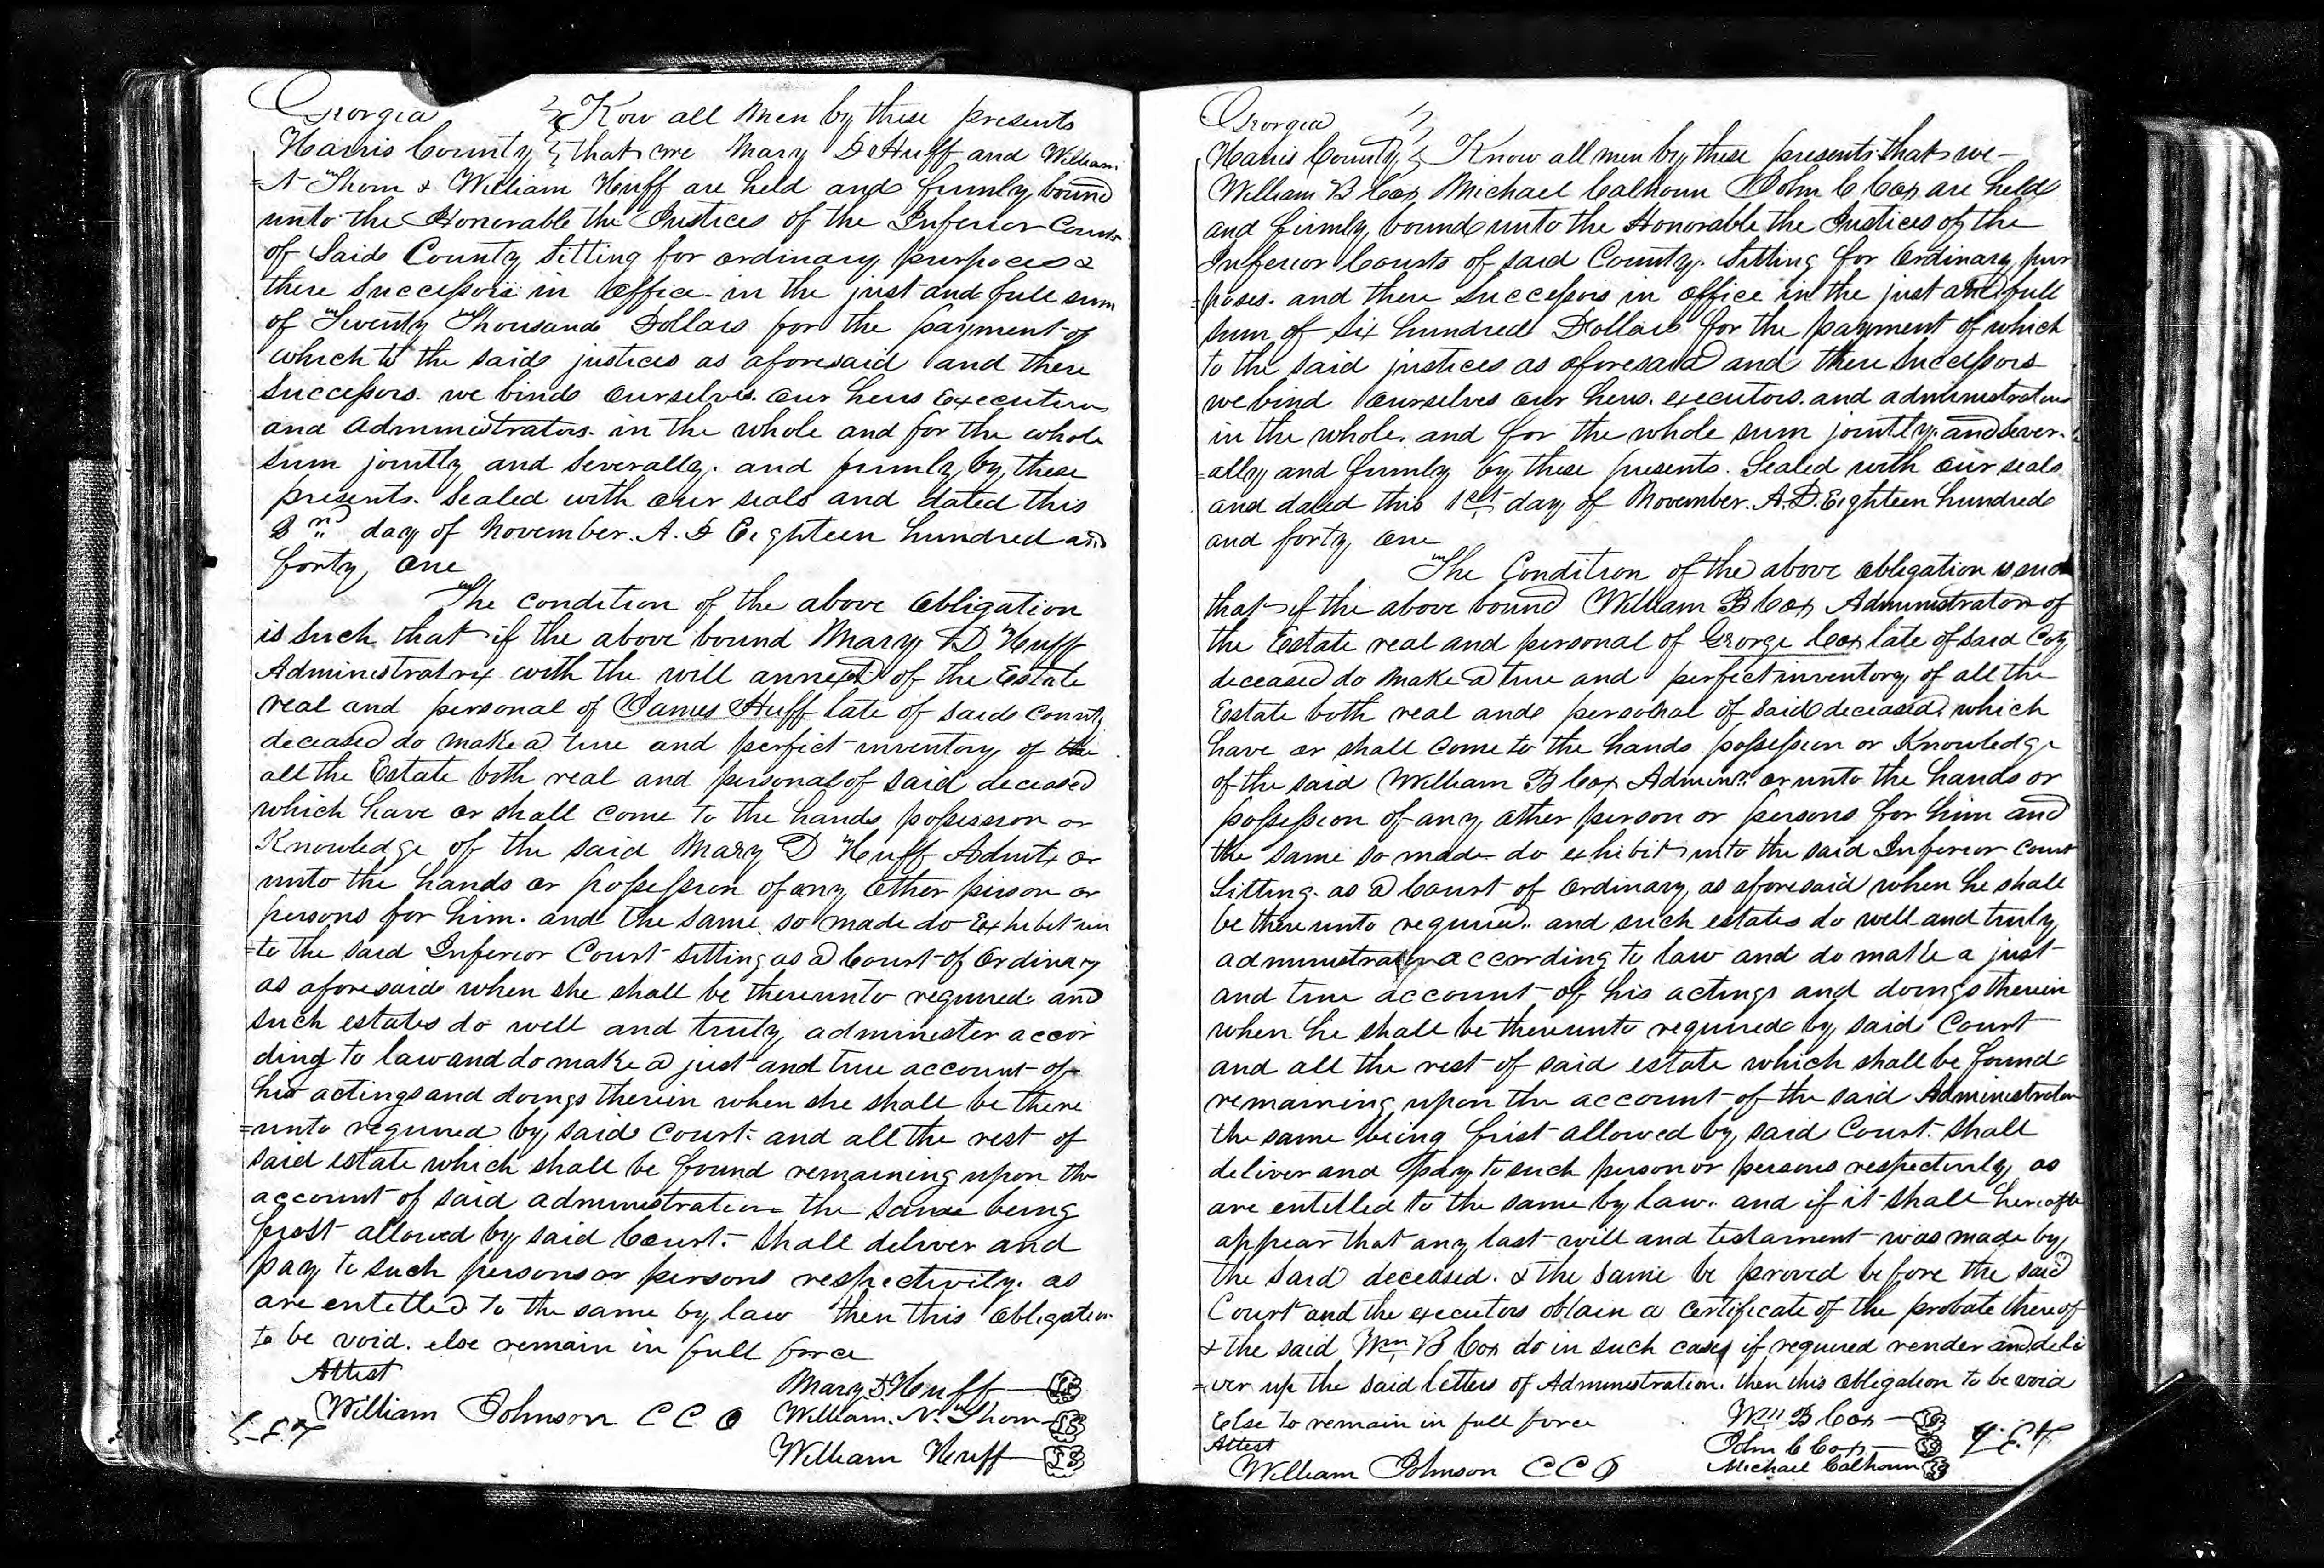 Georgia } Know all Men by these presents
Harris County } that we Mary D Huff and William
N Thom & William Huff are held and firmly bound
unto the Honorable the Justices of the Inferior Court
of Said County Sitting for ordinary purposes &
there Successors in office in the just and full sum
of Twenty Thousand Dollars for the payment of
which to the said justices as aforesaid and there
Successors we bind ourselves our heirs Executors
and Administrators in the whole and for the whole
Sum jointly and Severally and firmly by these
presents. Sealed with our seals and dated this
day of November A. D Eighteen hundred and
forty one
The condition of the above obligation
is Such that if the above bound Mary D Huff
Administratrix with the will annexed of the Estate
real and personal of James Huff late of said County
deceased do make a true and perfect inventory of the
all the Estate both real and personal of said deceased
which have or shall come to the hands possession or
Knowledge of the said Mary D Huff Admtx or
unto the hands or possession of any other person or
persons for him. and the same so made do Exhibit un
=to the said Inferior Court sitting as a Court of Ordinary
as aforesaid when she shall be thereunto required and
such estates do well and truly administer accor
ding to law and do make a just and true account of
his actings and doings therein when she shall be there
=unto required by said Court. and all the rest of
said estate which shall be found remaining upon the
account of said administration the same being
first allowed by said Court. shall deliver and
pay to such persons or persons respectively. as
are entitled to the same by law then this obligation
to be void. else remain in full force
Attest
Mary D Huff LS
William Johnson C C O William. N. Thom LS
William Huff LS
Georgia }
Harris County } Know all men by these presents that we
William B Cox Michael Calhoun John C Cox are held
and firmly bound unto the Honorable the Justices of the
Inferior Court of said County. Sitting for Ordinary pur
=poses. and there Successors in office in the just and full
sum of Six hundred Dollars for the payment of which
to the said justices as aforesaid and there successors
we bind ourselves our heirs. executors. and administrators
in the whole. and for the whole sum jointly. and sever-
=ally and firmly by these presents. Sealed with our seals
and dated this 1st day of November. A. D. Eighteen hundred
and forty one
The Condition of the above obligation is such
that if the above bound William B Cox Administrator of
the Estate real and personal of George Cox late of said Cty
deceased do make a true and perfect inventory of all the
Estate both real and personal of said deceased which
have or shall come to the hands possession or Knowledge
of the said William B Cox Adminr or unto the hands or
possession of any other person or persons for him and
the same so made do exhibit unto the said Inferior Court
Sitting. as a Court of Ordinary as aforesaid when he shall
be thereunto required. and such estates do well and truly
administrator according to law and do make a just
and true account of his actings and doings therein
when he shall be thereunto required by said Court
and all the rest of said estate which shall be found
remaining upon the account of the said Administrator
the same being first allowed by said Court. shall
deliver and pay to such person or persons respectively as
are entitled to the same by law. and if it shall hereafter
appear that any last will and testament was made by
the said deceased. & the same be proved before the said
Court and the executors obtain a certificate of the probate thereof
& the said Wm B Cox do in such case if required render and deli
=ver up the said letters of Administration. then this obligation to be void
Else to remain in full force Wm B Cox LS
Attest John C Cox LS
William Johnson C C O Michael Calhoun LS